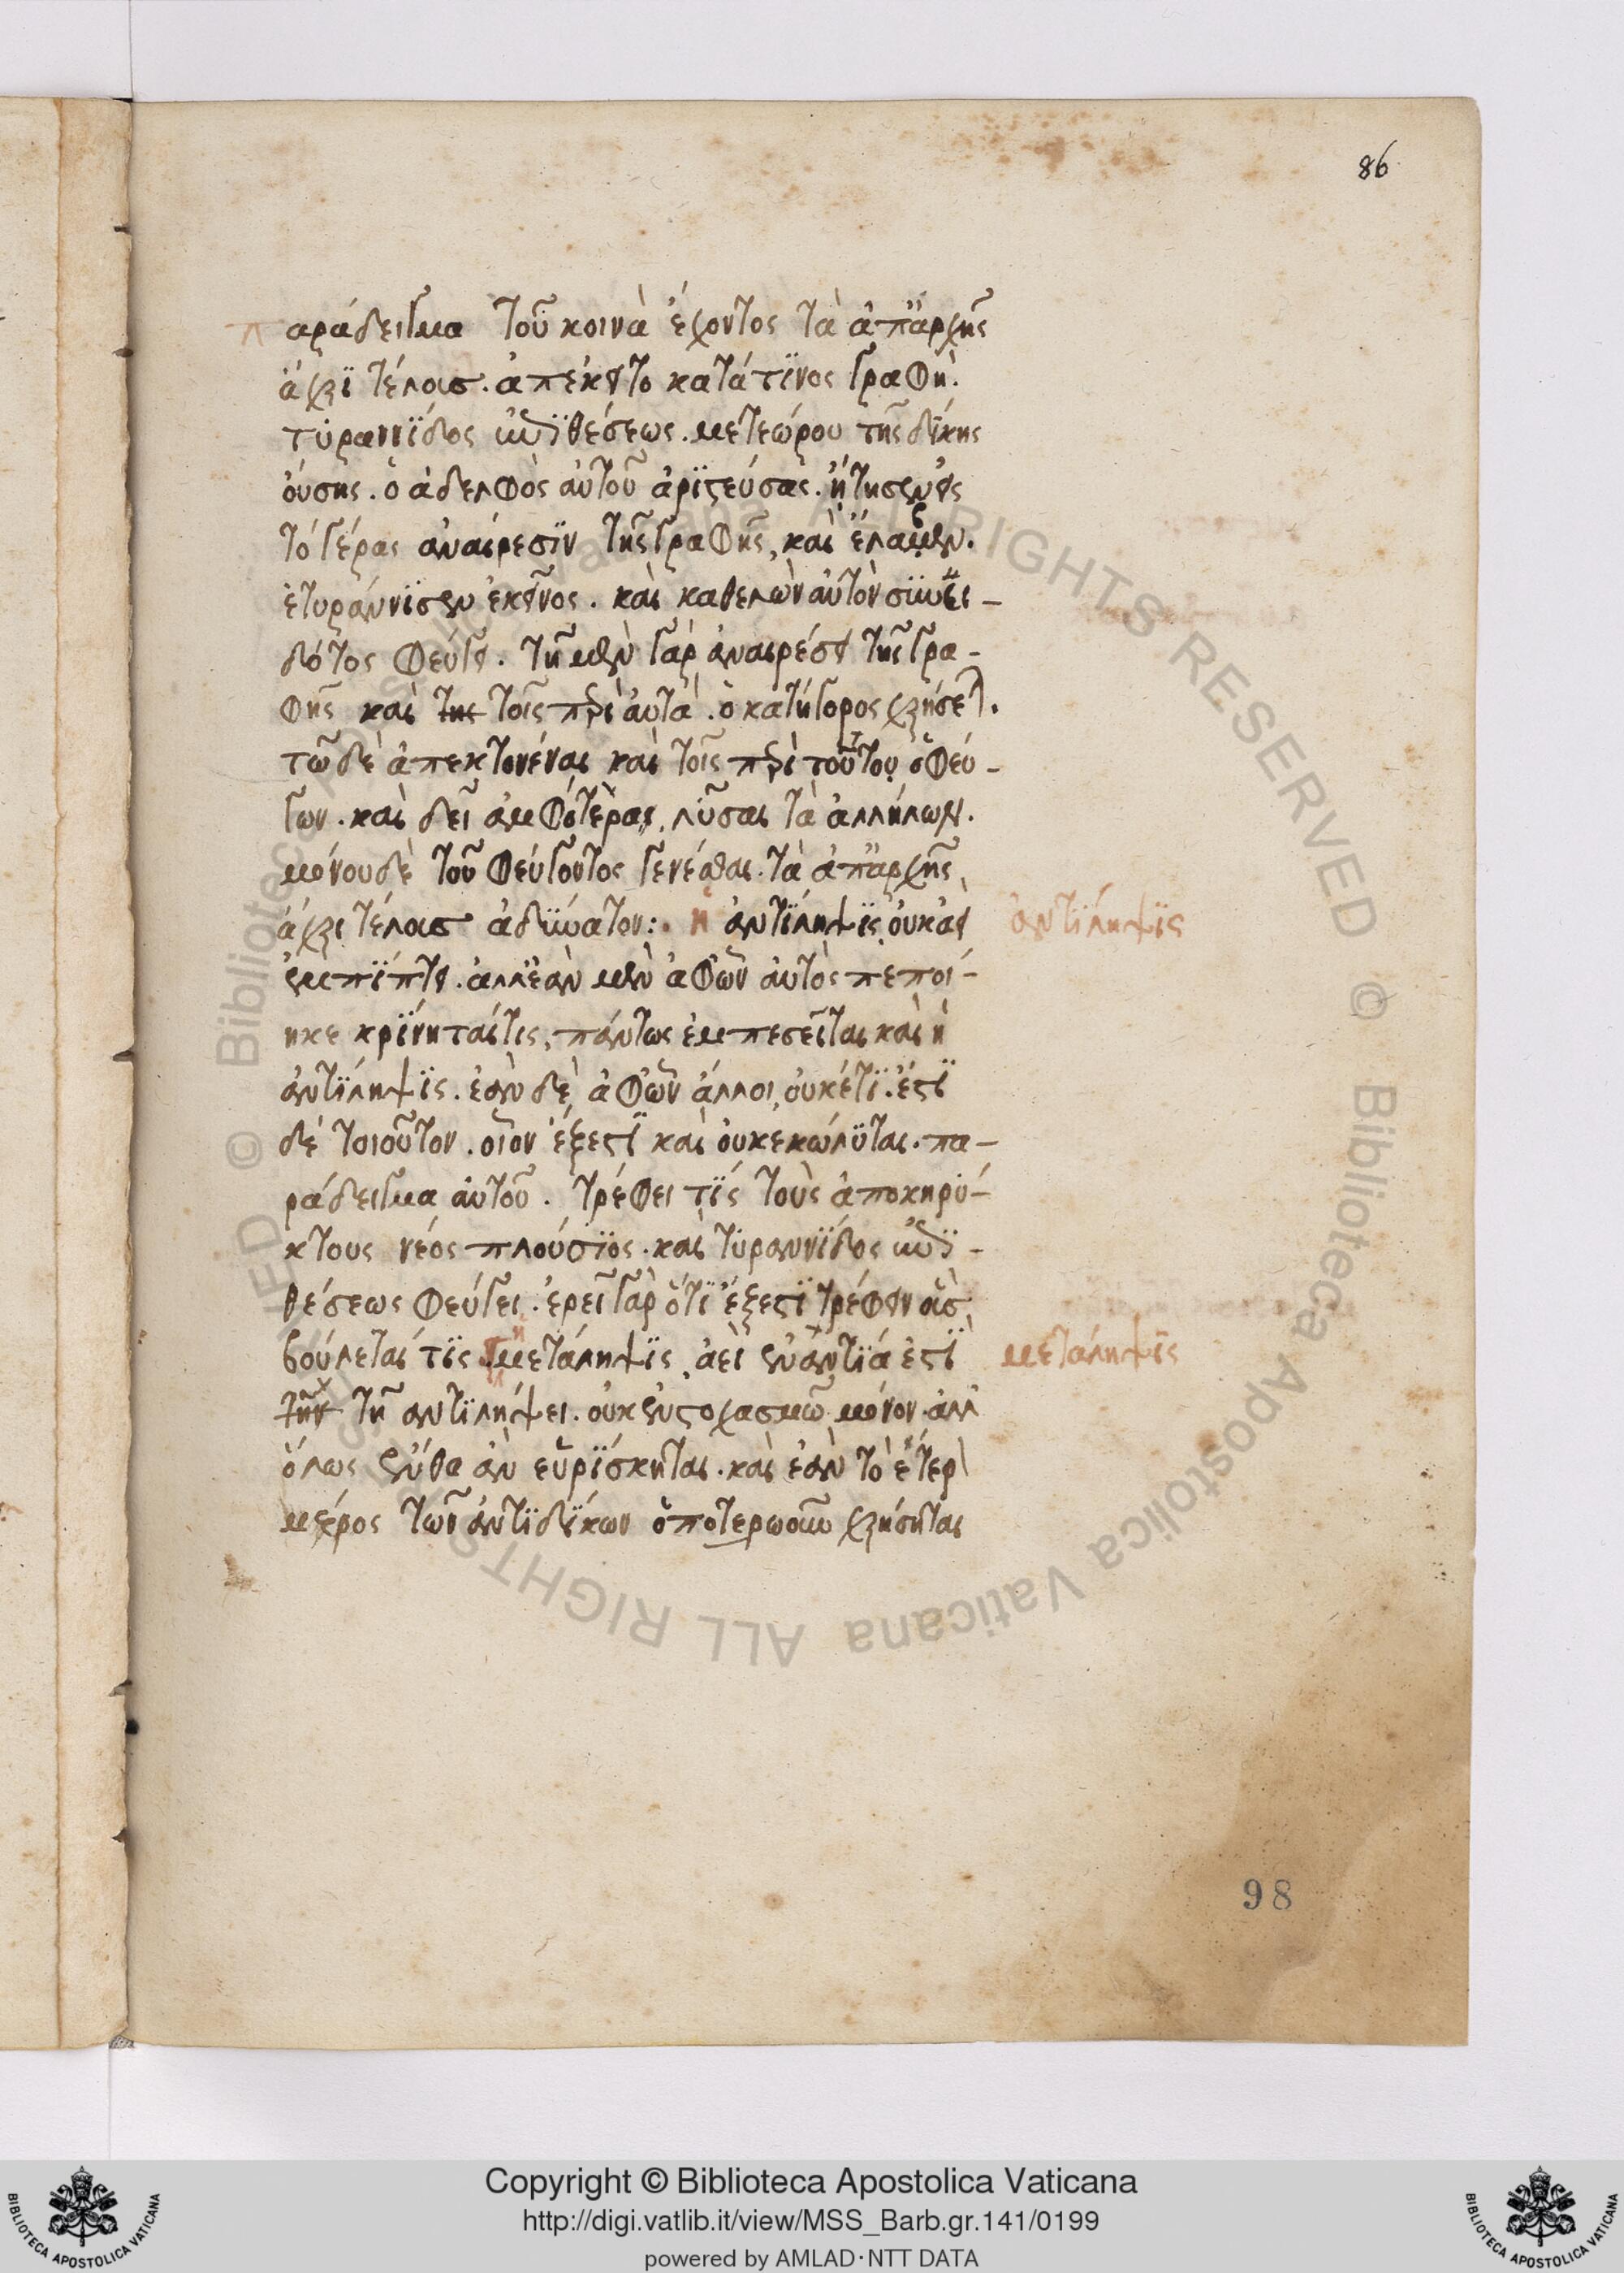 86
παράδειγμα τοῦ κοινὰ ἔχοντος τὰ ἀπἀρχῆς
ἄχρϊ τέλους. ἀπεκεῖτο κατά τϊνος γραφὴ.
τυραννΐδος ἐπϊθέσεως. μετεώρου τῆς δΐκης
ούσης. ὁ ἀδελφὸς αὐτοῦ ἀρϊστεύσας. ἤτησεν εἰς
τό γέρας αναίρεσϊν τῆς γραφῆς, καὶ ἔλαβεν.
ἐτυράννϊσεν ἐκεῖνος. καὶ καθελὼν αὐτὸν συνει-
δότος φεύγει. τῆ μὲν γὰρ ἀναιρέσει τῆς γρα-
φῆς καὶ της τοῖς περὶ αὐτὰ. ὁ κατήγορος χρήσεται.
τῶ δὲ ἀπεκτονέναι καὶ τοῖς περὶ τοῦτου ὁ φεύ-
γων. καὶ δεῖ ἀμφότερας, λῦσαι τὰ ἀλλήλων.
μόνου δὲ τοῦ φεύγοντος γενέσθαι. τὰ ἀπἀρχῆς,
ἄχρι τέλους ἀδύνατον:. ἡ ἀντΐληψϊς, οὐκ ἀεὶ
ἐμπΐπτει. ἀλλἐὰν μὲν ἀφῶν αὐτὸς πεποί-
ηκε κρΐνηταί τις, πάντως ἐμπεσεῖται καὶ ἡ
ἀντΐληψϊς. ἐὰν δὲ ἀφῶν ἄλλοι, οὐκέτϊ. ἔστϊ
δέ τοιοῦτον. οἷον ἔξεστϊ καὶ οὐκεκώλυται. πα-
ράδειγμα αὐτοῦ. τρέφει τΐς τοὺς ἀποκηρύ-
κτους νέος πλούσϊος. καὶ τυραννΐδος ἐπϊ-
θέσεως φεύγει. ἐρεῖ γὰρ ὅτϊ ἔξεστϊ τρέφειν οὓς
βούλεταί τϊς ἡ μετάληψϊς, ἀεὶ ἐναντϊά ἐστϊ
τὴν τῆ αντϊλήψει. οὐκ ἐν στοχασμῶ μόνον. ἀλλ
ὅλως ἔνθα ἀν εὑρΐσκηται. καὶ ἐὰν τὸ ἕτερ
μέρος τῶν ἀντϊδΐκων ὁποτερωοῦν χρήσηται
ἀντΐληψϊς
μετάληψϊς
98
Copyright © Biblioteca Apostolica Vaticana
http://digi.vatlib.it/view/MSS_Barb.gr.141/0199
powered by AMLAD·NTT DATA
BIBLIOTECA APOSTOLICA VATICANA
BIBLIOTECA APOSTOLICA VATICANA